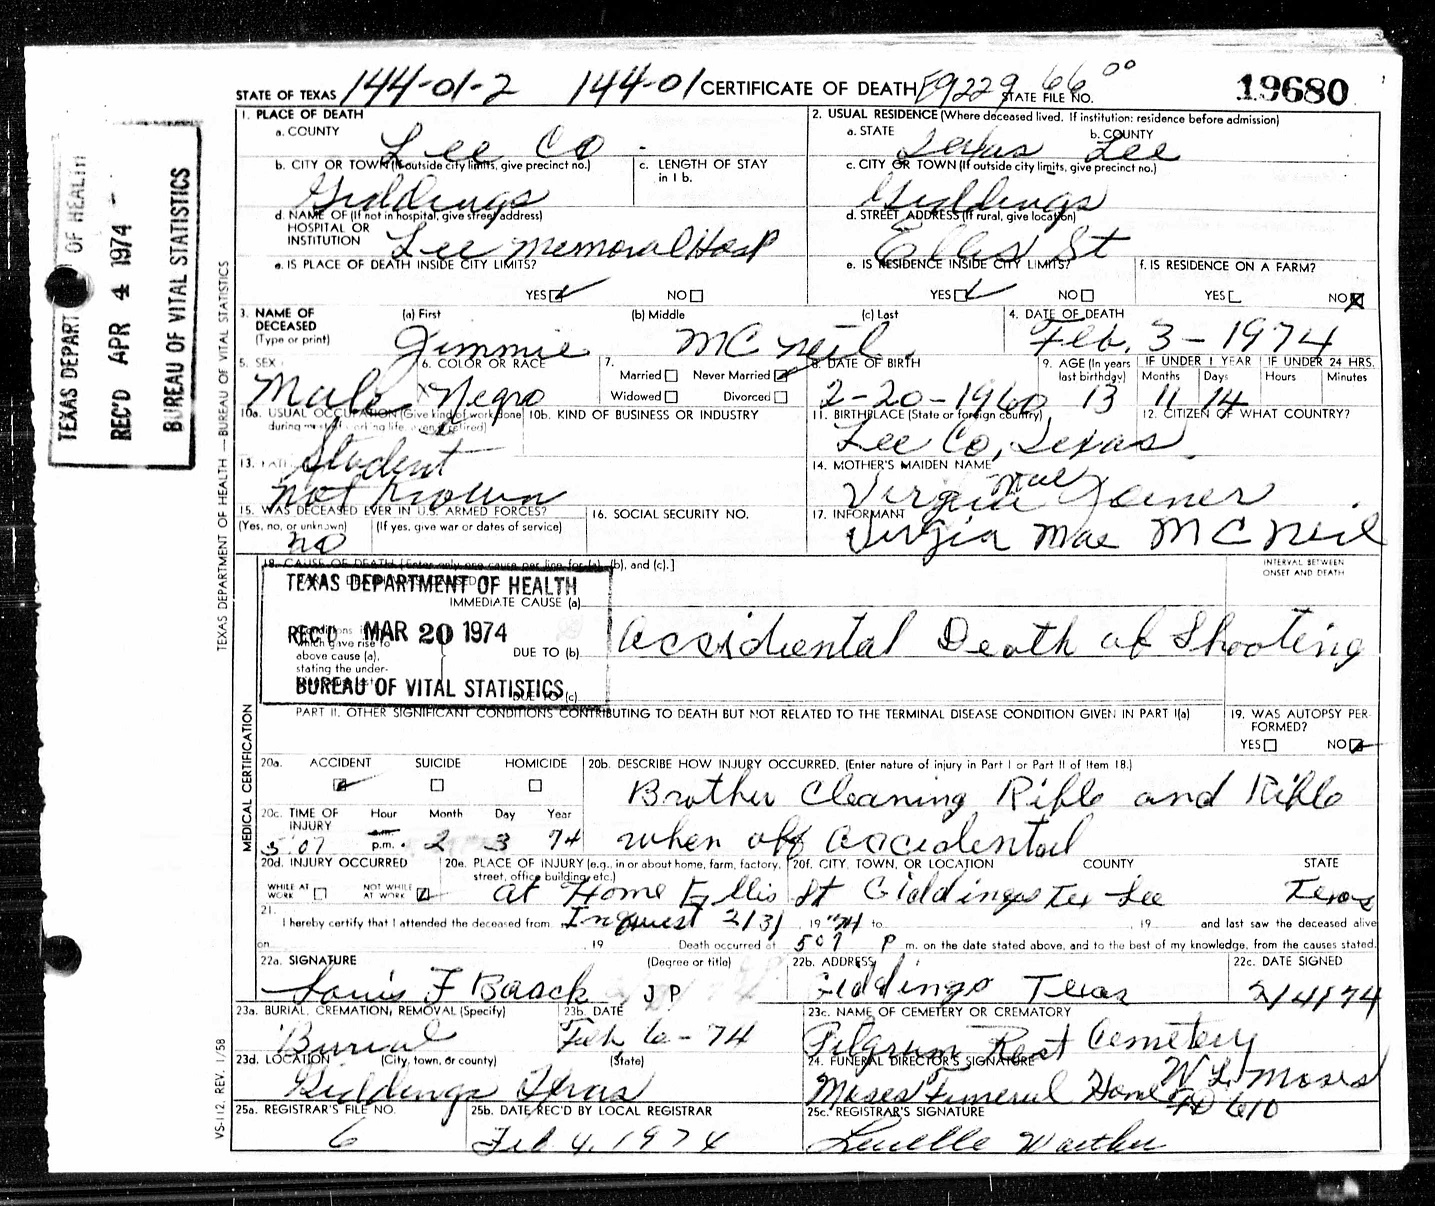 STATE OF TEXAS 144-01-2 144-01 CERTIFICATE OF DEATH E9229 66 00 STATE FILE NO. 19680
1. PLACE OF DEATH
a. COUNTY Lee Co.
2. USUAL RESIDENCE (Where deceased lived. If institution: residence before admission)
a. STATE Texas b. COUNTY Lee
b. CITY OR TOWN (If outside city limits, give precinct no.) Giddings
c. LENGTH OF STAY in 1 b.
c. CITY OR TOWN (If outside city limits, give precinct no.) Giddings
d. NAME OF (If not in hospital, give street address) HOSPITAL OR INSTITUTION Lee Memoral Hosp
d. STREET ADDRESS (If rural, give location) Ellis St
e. IS PLACE OF DEATH INSIDE CITY LIMITS?
YES NO
e. IS RESIDENCE INSIDE CITY LIMITS?
YES NO
f. IS RESIDENCE ON A FARM?
YES NO
3. NAME OF DECEASED (Type or print)
(a) First (b) Middle (c) Last
Jimmie Mc Neil
4. DATE OF DEATH
Feb. 3-1974
5. SEX Male
6. COLOR OR RACE Negro
7. Married Never Married
Widowed Divorced
8. DATE OF BIRTH 2-20-1960
9. AGE (In years last birthday) 13
IF UNDER 1 YEAR Months 11 Days 14
IF UNDER 24 HRS. Hours Minutes
10a. USUAL OCCUPATION (Give kind of work done during most of working life, even if retired) Student
10b. KIND OF BUSINESS OR INDUSTRY
11. BIRTHPLACE (State or foreign country) Lee Co, Texas
12. CITIZEN OF WHAT COUNTRY?
13. not known
14. MOTHER'S MAIDEN NAME Virgia Mae Joiner
15. WAS DECEASED EVER IN U.S. ARMED FORCES?
(Yes, no, or unknown) (If yes, give war or dates of service)
no
16. SOCIAL SECURITY NO.
17. INFORMANT Virgia Mae McNeil
18. CAUSE OF DEATH [Enter only one cause per line for (a), (b), and (c).]
INTERVAL BETWEEN ONSET AND DEATH
IMMEDIATE CAUSE (a)
Conditions which gave rise to above cause (a), stating the under-
DUE TO (b) accidental Death of Shooting
DUE TO (c)
TEXAS DEPARTMENT OF HEALTH
REC'D MAR 20 1974
BUREAU OF VITAL STATISTICS
PART II. OTHER SIGNIFICANT CONDITIONS CONTRIBUTING TO DEATH BUT NOT RELATED TO THE TERMINAL DISEASE CONDITION GIVEN IN PART I(a)
19. WAS AUTOPSY PERFORMED?
YES NO
20a. ACCIDENT SUICIDE HOMICIDE
20b. DESCRIBE HOW INJURY OCCURRED. (Enter nature of injury in Part I or Part II of Item 18.)
Brother Cleaning Rifle and Rifle
when off accidental
20c. TIME OF INJURY Hour Month Day Year
5:07 a.m. p.m. 2 3 74
20d. INJURY OCCURRED
WHILE AT WORK NOT WHILE AT WORK
20e. PLACE OF INJURY (e.g., in or about home, farm, factory, street, office building, etc.)
at Home Ellis St
20f. CITY, TOWN, OR LOCATION COUNTY STATE
Giddings Tex Lee Texas
21. I hereby certify that I attended the deceased from Inquest 2/3/, 1974 to , 19 and last saw the deceased alive
on , 19 Death occurred at 507 P m. on the date stated above, and to the best of my knowledge, from the causes stated.
22a. SIGNATURE (Degree or title)
Louis F Baack J P
22b. ADDRESS
Giddings Texas
22c. DATE SIGNED
2/4/74
23a. BURIAL, CREMATION, REMOVAL (Specify) Burial
23b. DATE Feb 6-74
23c. NAME OF CEMETERY OR CREMATORY
Pilgrim Rest Cemetery
23d. LOCATION (City, town, or county) (State)
Giddings Texas
24. FUNERAL DIRECTOR'S SIGNATURE
Moses Funeral Home W L Moses
610
25a. REGISTRAR'S FILE NO. 6
25b. DATE REC'D BY LOCAL REGISTRAR Feb 4, 1974
25c. REGISTRAR'S SIGNATURE
MEDICAL CERTIFICATION
TEXAS DEPARTMENT OF HEALTH—BUREAU OF VITAL STATISTICS
VS-112, REV. 1/58
TEXAS DEPARTMENT OF HEALTH
REC'D APR 4 1974
BUREAU OF VITAL STATISTICS